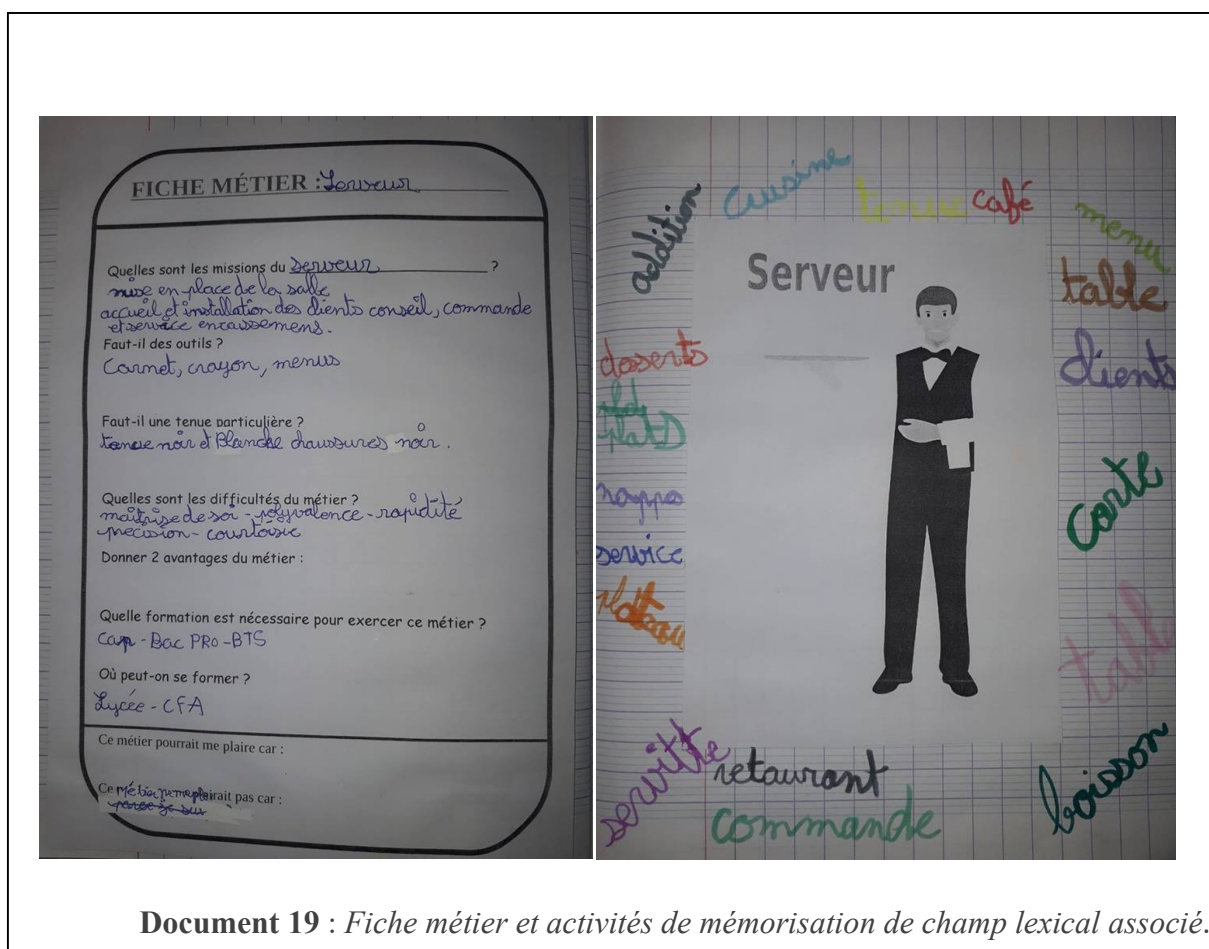 FICHE MÉTIER : Serveur
Quelles sont les missions du serveur ?
mise en place de la salle
accueil et installation des clients conseil, commande
et service encaissemens.
Faut-il des outils ?
Carnet, crayon, menus
Faut-il une tenue particulière ?
tenue noir et Blanche chaussures noir.
Quelles sont les difficultés du métier ?
maîtrise de soi - polyvalence - rapidité
précision - courtoisie
Donner 2 avantages du métier :
Quelle formation est nécessaire pour exercer ce métier ?
Cap - Bac PRO - BTS
Où peut-on se former ?
Lycée - CFA
Ce métier pourrait me plaire car :
Ce pas car :
addition
cuisine
tenue
café
menu
table
clients
carte
table
boisson
Serveur
desserts
plats
nappe
service
plateau
serviette
retaurant
commande
Document 19 : Fiche métier et activités de mémorisation de champ lexical associé.